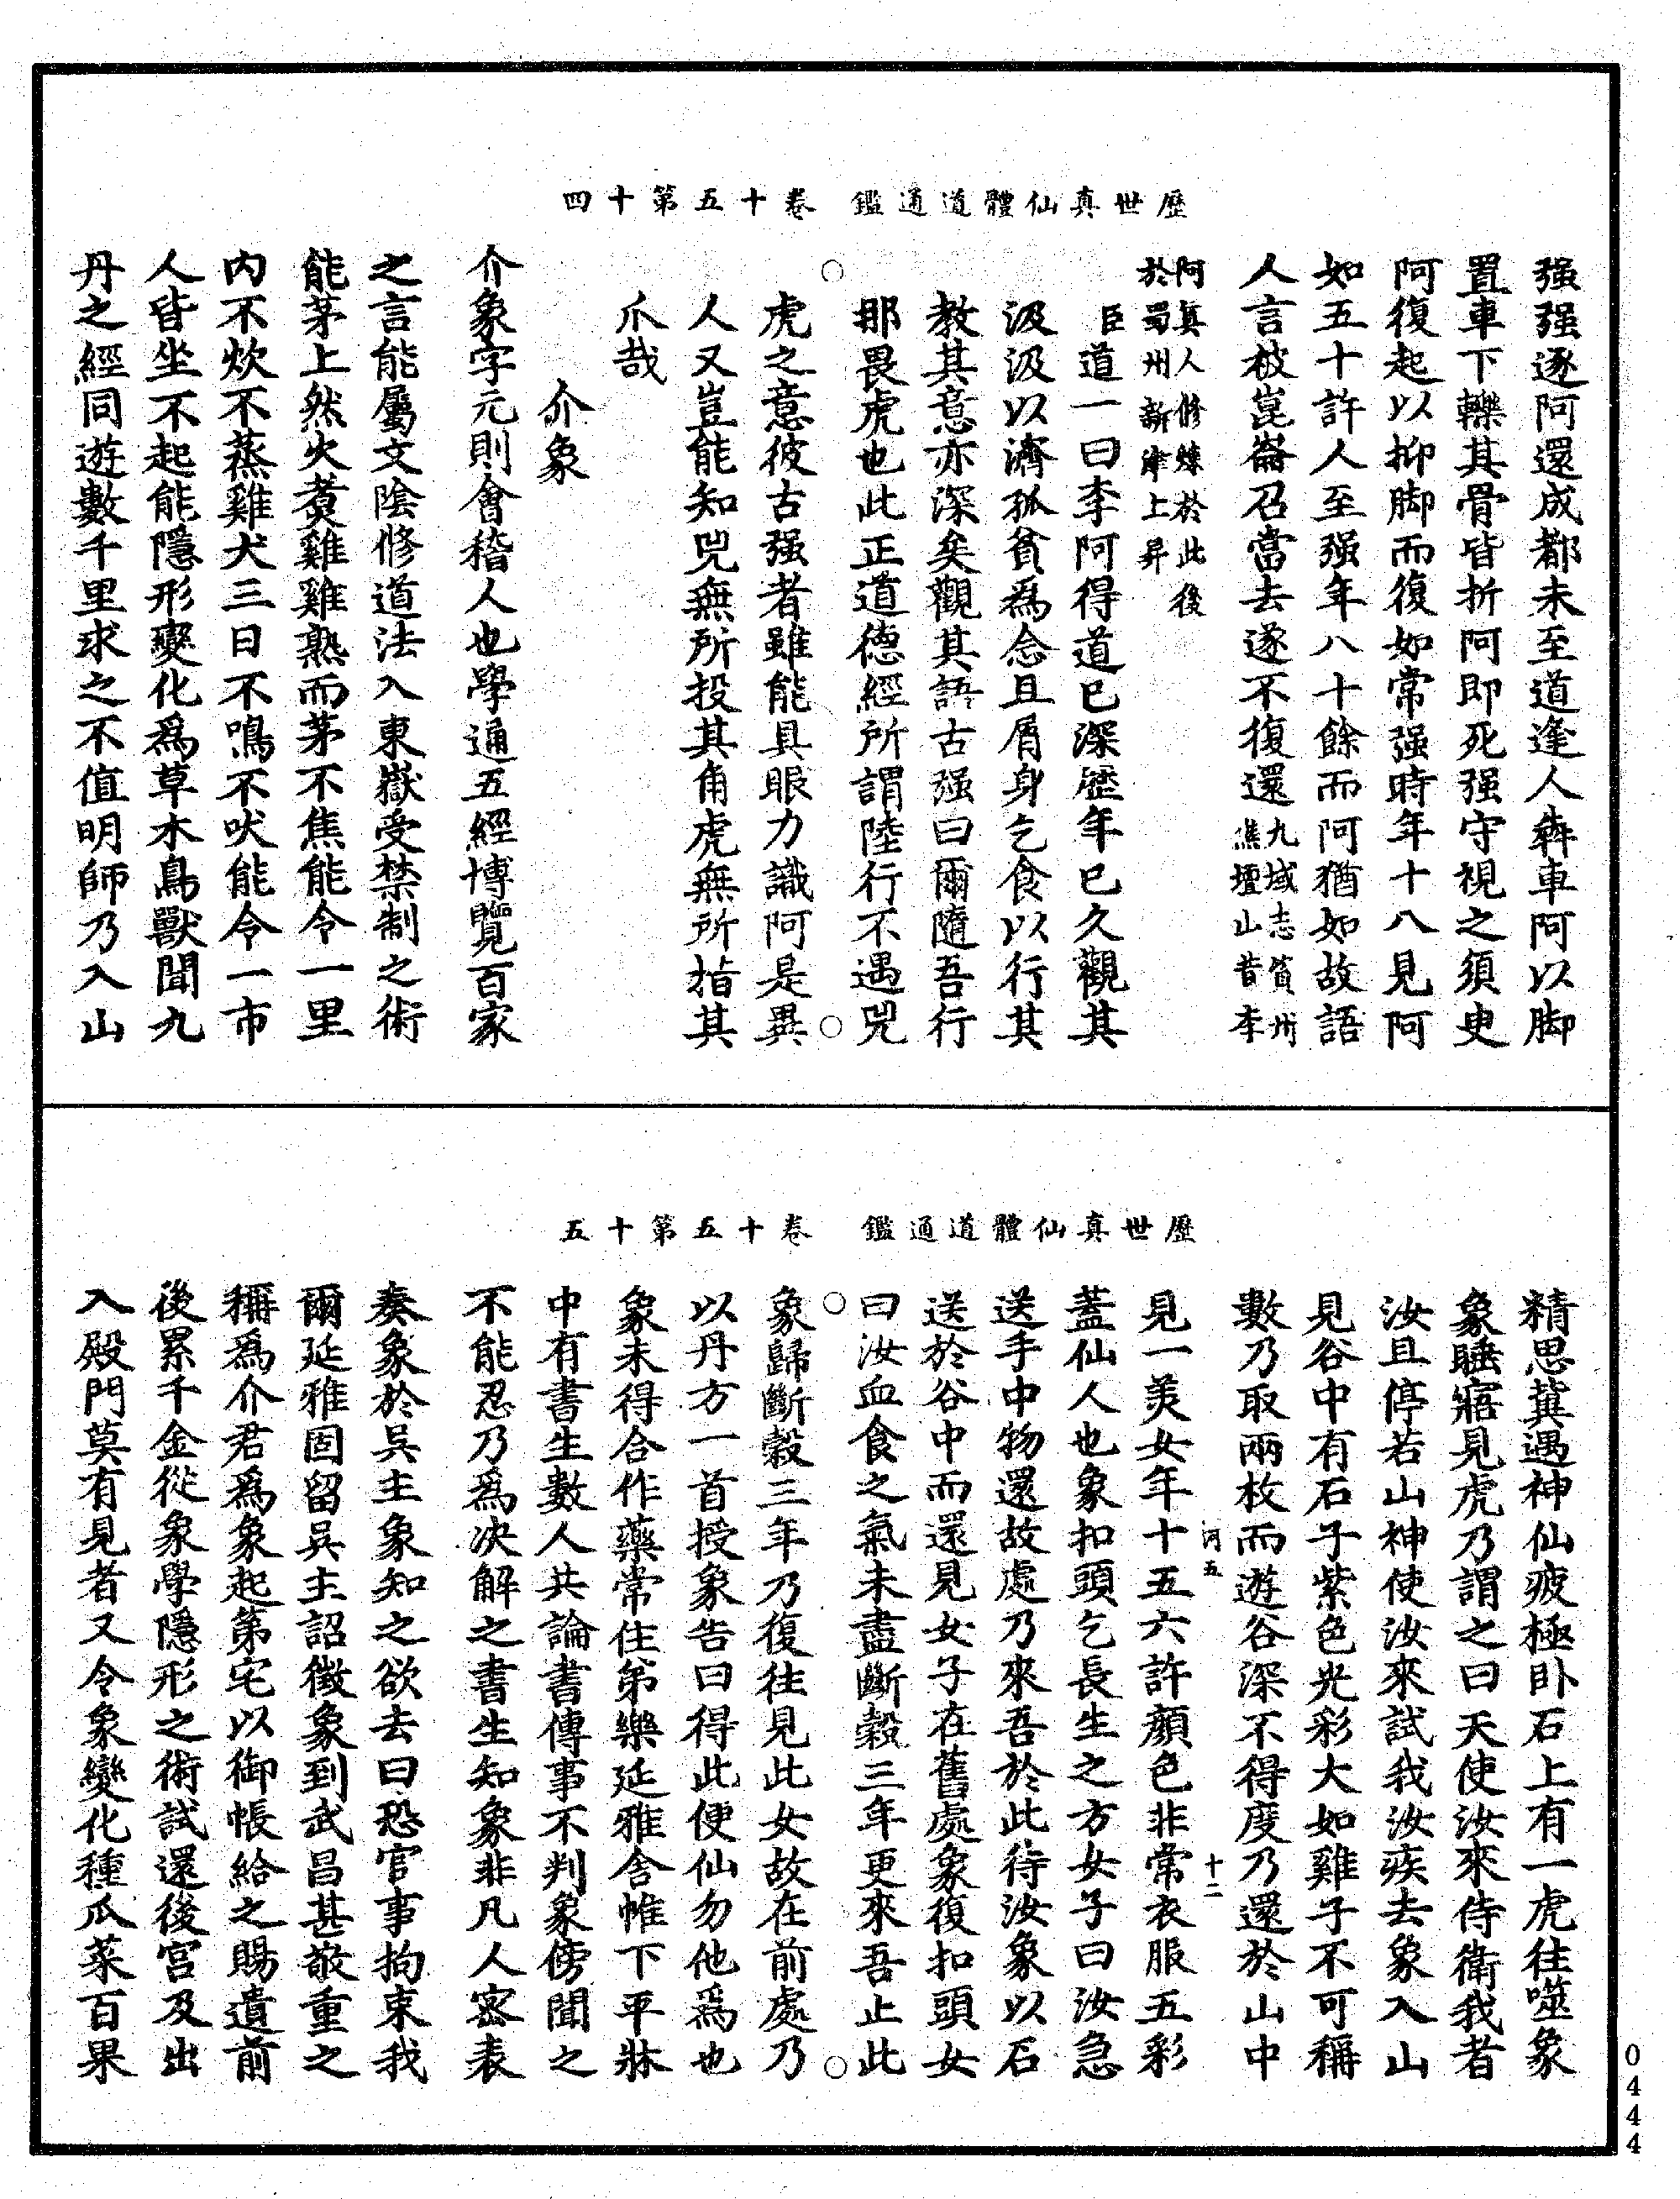 歷世真仙體道通鑑　卷十五第十四
强强逐阿還成都未至道逢人犇車阿以脚
置車下轢其骨皆折阿即死强守視之須臾
阿復起以抑脚而復如常强時年十八見阿
如五十許人至强年八十餘而阿猶如故語
人言被崑崙召當去遂不復還九域志資州
焦壇山昔李
阿真人修煉於此後
於蜀州新津上昇
臣道一曰李阿得道已深歷年已久觀其
汲汲以濟孤貧爲念且屑身乞食以行其
教其意亦深矣觀其語古强曰爾隨吾行
那畏虎也此正道德經所謂陸行不遇兕
虎之意彼古强者雖能具眼力識阿是異
人又豈能知兕無所投其角虎無所措其
爪哉
介象
介象字元則會稽人也學通五經博覽百家
之言能屬文陰修道法入東嶽受禁制之術
能茅上然火煑雞雞熟而茅不焦能令一里
内不炊不蒸雞犬三日不鳴不吠能令一市
人皆坐不起能隱形變化爲草木鳥獸聞九
丹之經同遊數千里求之不值明師乃入山
歷世真仙體道通鑑　卷十五第十五
精思冀遇神仙疲極卧石上有一虎往噬象
象睡寤見虎乃謂之曰天使汝來侍衛我者
汝且停若山神使汝來試我汝疾去象入山
見谷中有石子紫色光彩大如雞子不可稱
數乃取兩枚而遊谷深不得度乃還於山中
河五　十二
見一羙女年十五六許顏色非常衣服五彩
蓋仙人也象扣頭乞長生之方女子曰汝急
送手中物還故處乃來吾於此待汝象以石
送於谷中而還見女子在舊處象復扣頭女
曰汝血食之氣未盡斷穀三年更來吾止此
象歸斷穀三年乃復往見此女故在前處乃
以丹方一首授象告曰得此便仙勿他爲也
象未得合作藥常住弟樂延雅舍帷下平牀
中有書生數人共論書傳事不判象傍聞之
不能忍乃爲决解之書生知象非凡人密表
奏象於吳主象知之欲去曰恐官事拘束我
爾延雅固留吳主詔徵象到武昌甚敬重之
稱爲介君爲象起第宅以御帳給之賜遺前
後累千金從象學隱形之術試還後宫及出
入殿門莫有見者又令象變化種瓜菜百果
0444